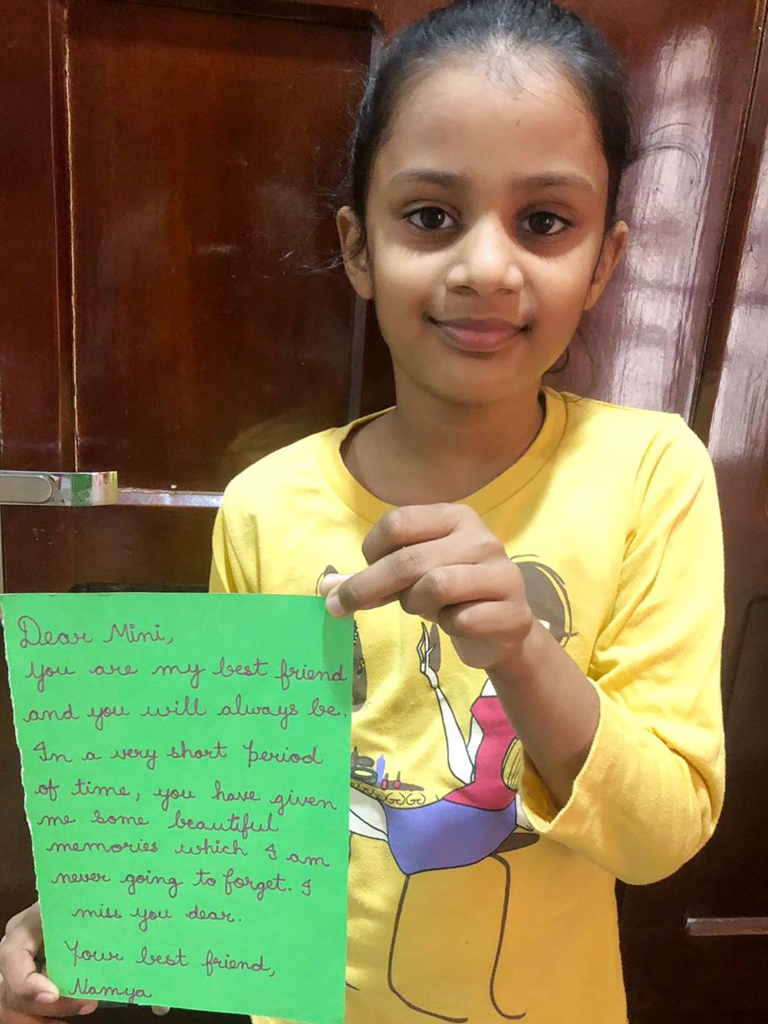 Dear Mini,
You are my best friend
and you will always be.
In a very short period
of time, you have given
me some beautiful
memories which I am
never going to forget. I
miss you dear.
Your best friend,
Namya